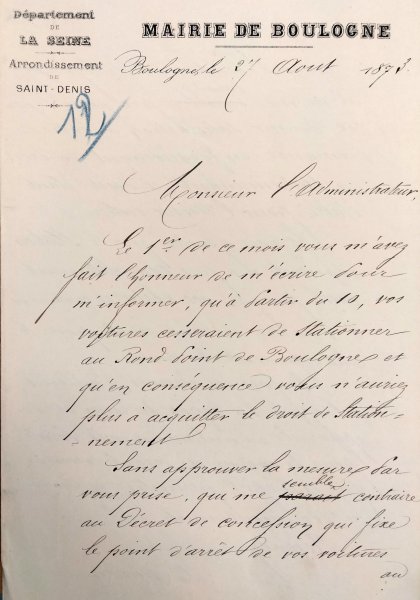 Département
DE
LA SEINE
Arrondissement
DE
SAINT-DENIS
MAIRIE DE BOULOGNE
Boulogne, le 27 Août 1873.
12
Monsieur l'Administrateur,
Le 1er de ce mois vous m'avez
fait l'honneur de m'écrire pour
m'informer, qu'à partir du 10, vos
voitures cesseraient de stationner
au Rond Point de Boulogne et
qu'en conséquence vous n'auriez
plus à acquitter le droit de station-
-nement.
Sans approuver la mesure par
semble
vous prise, qui me paraît contraire
au Décret de concession qui fixe
le point d'arrêt de vos voitures
au